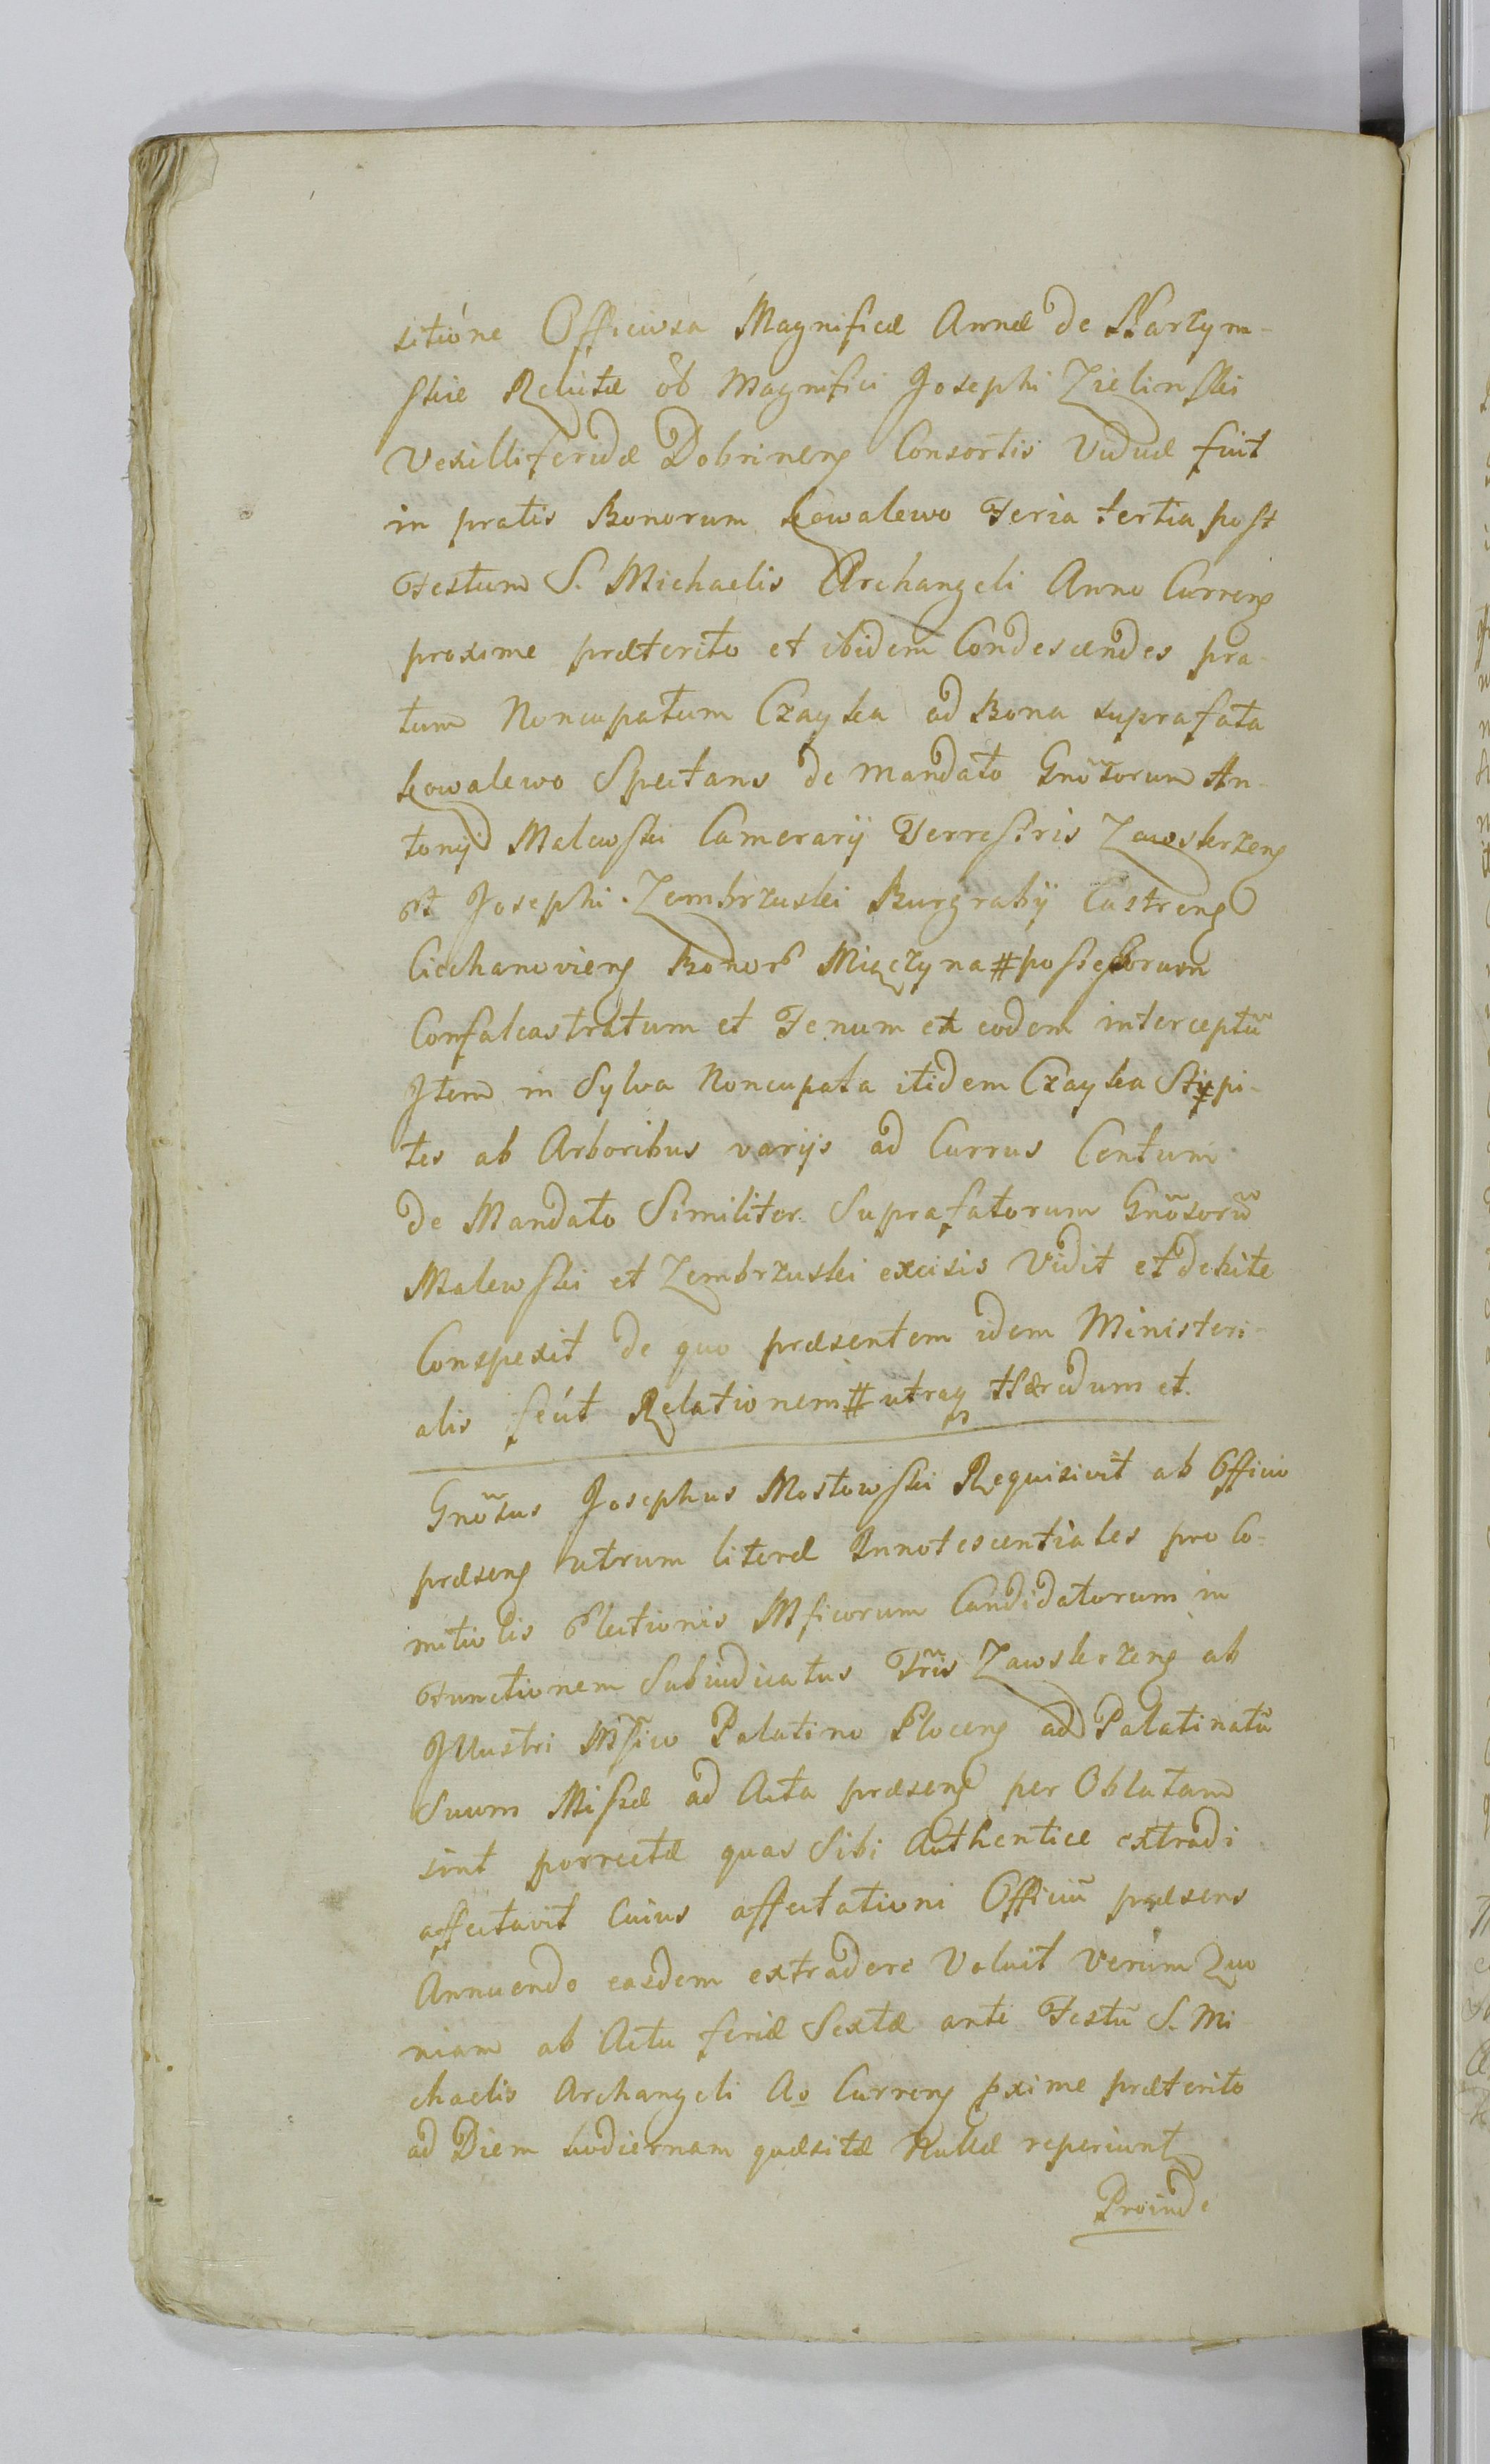 sitióne Officiosa Magnificæ Annæ de Karczym-
skie Relictæ ōb Magnifici Josephi Zielinski
Vexilliferidæ Dobrinens Consortis Viduæ fuit
in pratis Bonorum Kowalewo Feria tertia post
Festum S. Michaelis Archangeli Anno Currens
proxime præterito et ibidem Condescendes pra-
tum Noncupatum Czayka ad Bona suprafata
Kowalewo Spectans de mandato Gnõsorum An-
tonij Malewski Camerarij Terrestris Zawskrzens
et Josephi Zembrzuski Burgrabij Castrens
Ciechanoviens Bonor Mięczyna # possessorum
Confalcastratum et Fenum ex eodem interceptũ
Item in Sylva Noncupata itidem Czayka Stipi-
tes ab Arboribus varijs ad Currus Centum
de Mandato Similiter Suprafatorum Gnõsorũ
Malewski et Zembrzuski excisis Vidit et debite
Conspexit de quo præsentem idem Ministeri-
alis fecit Relationem # utraq Hæredum et.
Gnõsus Josephus Mostowski Requisivit ab Officio
præsens utrum literæ Innotescentiales pro Co-
mitiolis Electionis Mficorum Candidatorum in
Functionem Subiudicatus Tr̃is Zawskrzens ab
Illustri Mfico Palatino Plocens ad Palatinatũ
Suum Missæ ad Acta præsens per Oblatam
sint porrectæ quas Sibi Authentice extradi
affectavit Cuius affectationi Officiũ præsens
Annuendo easdem extradere Voluit verum Quo
niam ab Actu feriæ Sextæ ante Festũ S. Mi-
chaelis Archangeli Ao Currens pxime præterito
ad Diem hodiernam quæsitæ Nullæ reperiunt
Proinde